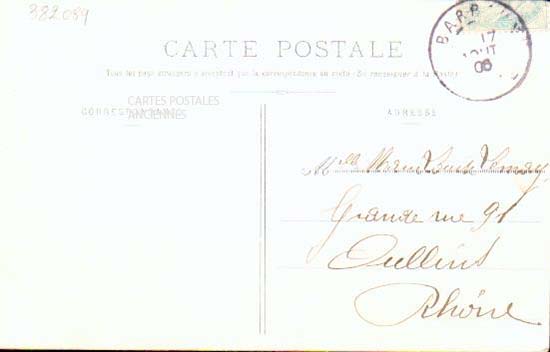 382089
CARTE POSTALE
Tous les pays étrangers n'acceptent pas la correspondance au recto (Se renseigner à la Poste)
17
AOUT
06
CARTES POSTALES
ANCIENNES
CORRESPONDANCE
ADRESSE
Mlle
Grande rue 91
Oullins
Rhône